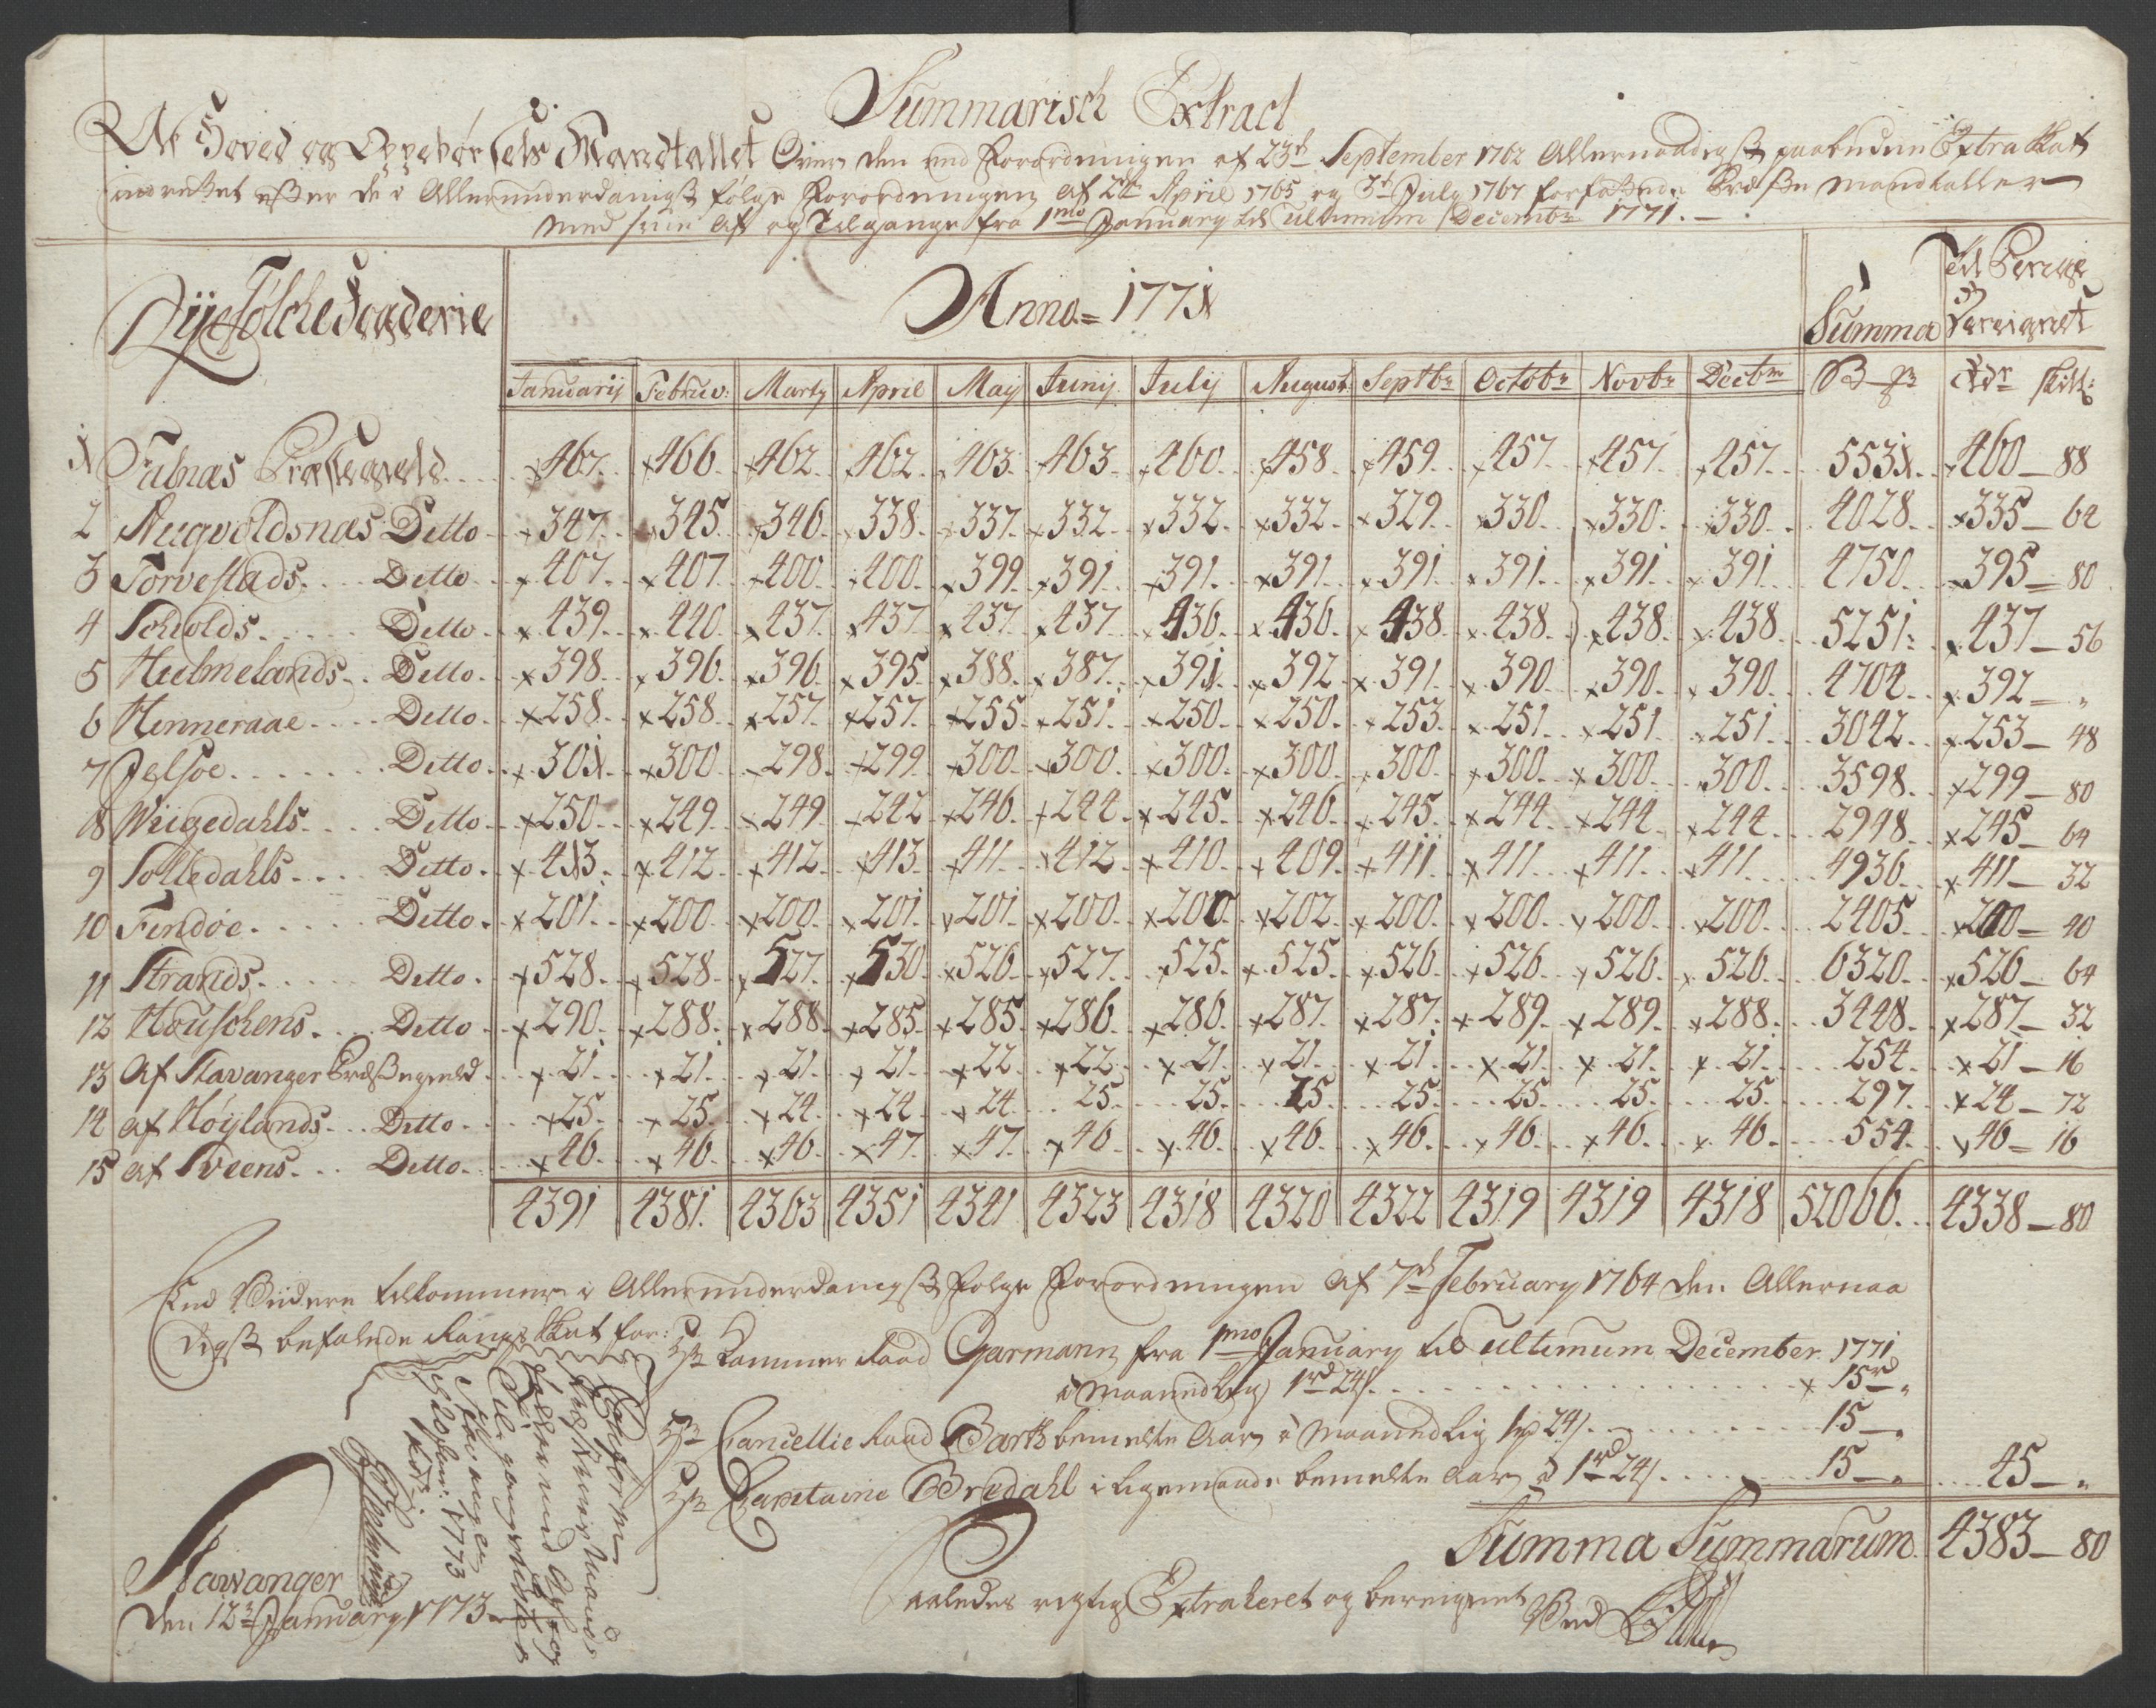 Summarisch Extract
Af Hoved og Oppebørsels Mandtallet Over den ved Forordningen af 23de September 1762 Allernaadigst paabudene Extra Skat
indrettet efter de i Allerunderdanigst følge Forordningen af 2den April 1765 og 3de July 1767 forfattede Præste Mandtaller
med sine Af og Tilgange fra 1mo January til ultimum Decembr 1771.
Ryefølche Fogderie
Anno = 1771
Summa
Til Penge Bereignet
Januarij Februv: Marty April Maij Junij Julij August Septbr Octobr Novbr Decbr Rdr Skill:
1 Falnæs Præstegield 467. 466. 462. 462. 463. 463. 460. 458. 459. 457. 457. 457. 5531. 460 - 88
2 Augvoldsnæs Ditto 347. 345. 346. 338. 337. 332. 332. 332. 329. 330. 330. 330. 4028. 335 - 64
3 Torvestads Ditto 407. 407. 400. 400. 399. 391. 391. 391. 391. 391. 391. 391. 4750. 395 - 80
4 Schiolds Ditto 439. 440. 437. 437. 437. 437. 436. 436. 438. 438. 438. 438. 5251. 437 - 56
5 Hielmelands Ditto 398. 396. 396. 395. 388. 387. 391. 392. 391. 390. 390. 390. 4704. 392 - "
6 Henneraae Ditto 258. 258. 257. 257. 255. 251. 250. 250. 253. 251. 251. 251. 3042. 253 - 48
7 Jelsøe Ditto 301. 300. 298. 299. 300. 300. 300. 300. 300. 300. 300. 300. 3598. 299 - 80
8 Wiigedahls Ditto 250. 249. 249. 242. 246. 244. 245. 246. 245. 244. 244. 244. 2948. 245 - 64
9 Søllledahls Ditto 413. 412. 412. 413. 411. 412. 410. 409. 411. 411. 411. 411. 4936. 411 - 32
10 Findøe Ditto 201. 200. 200. 201. 201. 200. 200. 202. 200. 200. 200. 200. 2405. 200 - 40
11 Strands Ditto 528. 528. 527. 530. 526. 527. 525. 525. 526. 526. 526. 526. 6320. 526 - 64
12 Houschens Ditto 290. 288. 288. 285. 285. 286. 286. 287. 287. 289. 289. 288. 3448. 287 - 32
13 Af Stavanger Præstegield 21. 21. 21. 21. 22. 22. 21. 21. 21. 21. 21. 21. 254. 21 - 16
14 af Høylands Ditto 25. 25. 24. 24. 24. 25. 25. 25. 25. 25. 25. 25. 297. 24 - 72
15 af Sveens Ditto 46. 46. 46. 47. 47. 46. 46. 46. 46. 46. 46. 46. 554. 46 - 16
4391 4381. 4363 4351 4341 4323 4318 4320 4322 4319 4319 4318 52066. 4338 - 80
End Viidere tilkommer i Allerunderdanigst Følge Forordningen af 7de February 1764 den Allernaa
digst befalede Rangs Skat for:
Hr Cammer Raad Garmann fra 1mo January til ultimum December 1771
à maanedlig 1rd 24s. 15rd "
Hr Cancellie Raad Barth bemelte Aar à Maanedlig 1rd 24s. 15 - "
Hr Capitaine Bredahl i ligemaade bemelte Aar à 1rd 24s. 15 - " 45 - "
Summa Summarum 4383 - 80
Saaledes rigtig Extraheret og bereignet
Ved
Stavanger
den 12te January 1773
Conform
Stavanger
1773